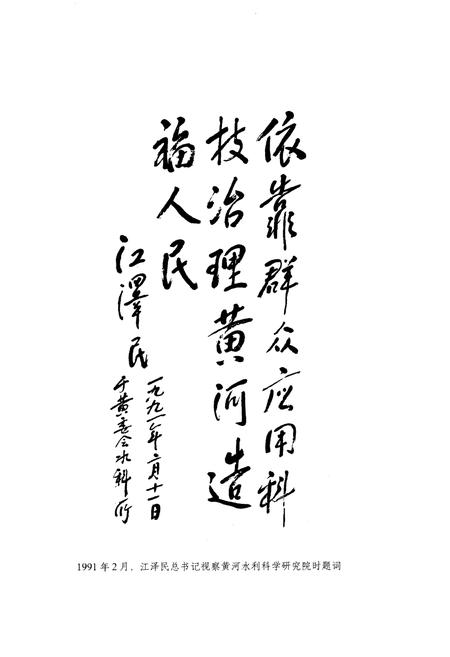 依靠群众应用科
技治理黄河造
福人民
江澤民
一九九一年二月十一日
于黄委会水科所
1991年2月，江泽民总书记视察黄河水利科学研究院时题词